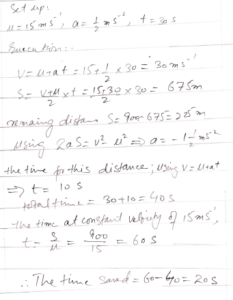 Set up:
u = 15 m s⁻¹, a = 1/2 m s⁻², t = 30 s
Execution:-
V = u + at = 15 + 1/2 × 30 = 30 m s⁻¹
S = (v+u)/2 × t = (15+30)/2 × 30 = 675 m
remaining distance S = 900 - 675 = 225 m
Using 2aS = v² - u² ⇒ a = -1 1/2 m s⁻²
the time for this distance; using v = u + at
⇒ t = 10 s
total time = 30 + 10 = 40 s
the time at constant velocity of 15 m s⁻¹,
t = S/u = 900/15 = 60 s
∴ The time saved = 60 - 40 = 20 s